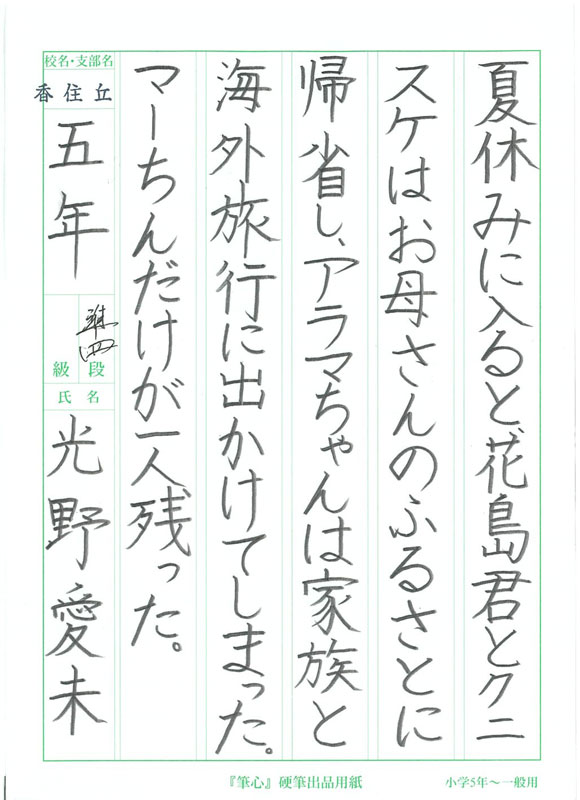 夏休みに入ると、花島君とクニ
スケはお母さんのふるさとに
帰省し、アラマちゃんは家族と
海外旅行に出かけてしまった。
マーちんだけが一人残った。
校名・支部名
香住丘
五年
準四
段
級
氏名
光野愛未
『筆心』硬筆出品用紙
小学5年〜一般用